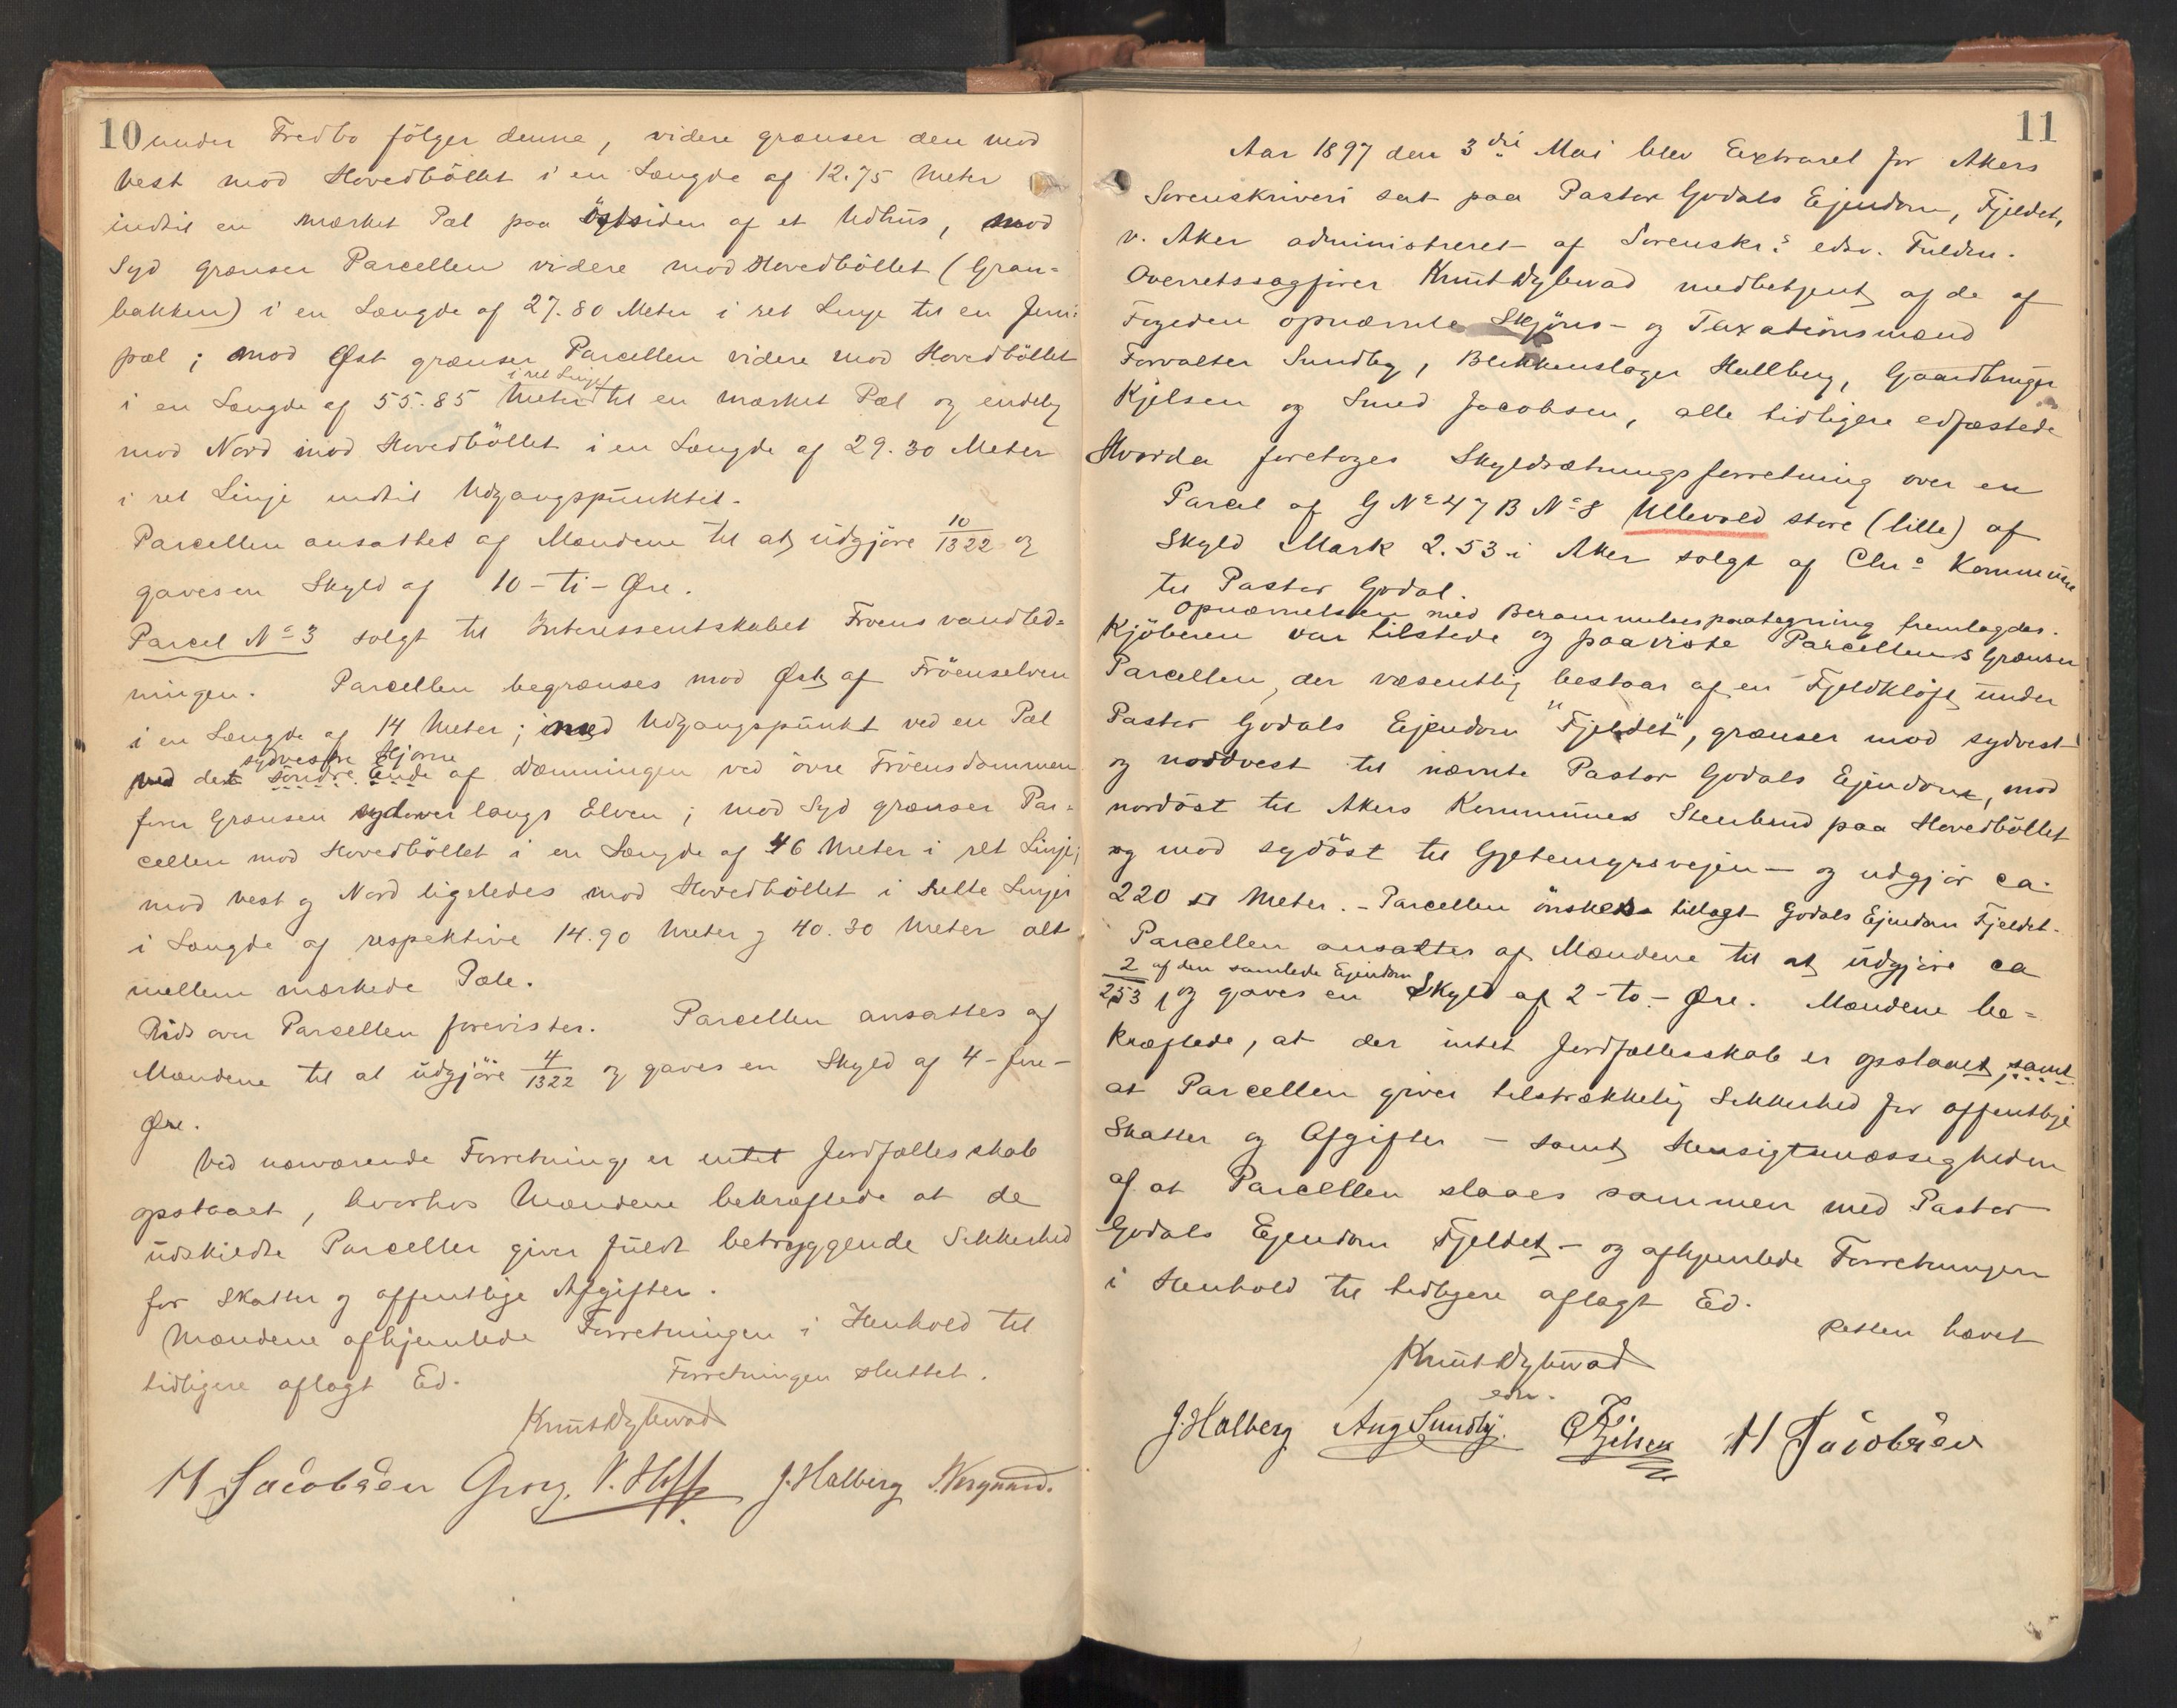 10
under Fredbo følger denne, videre grænser den mod
Vest mod Hovedbøllet i en Længde af 12.75 Meter
indtil en mærket Pæl paa Östsiden af et Udhus, mod
Syd grænser Parcellen videre mod Hovedbøllet (Gran-
bakken) i en Længde af 27.80 Meter i ret Linje til en Jern-
pæl; mod Øst grænser Parcellen videre mod Hovedbøllet
i ret Linje
i en Længde af 55.85 Meter til en mærket Pæl og endelig
mod Nord mod Hovedbøllet i en Længde af 29.30 Meter
i ret Linje indtil Udgangspunktet.
Parcellen ansattes af Mændene til at udgjøre 10/1322 og
gaves en Skyld af 10 - ti - Øre.
Parcel No 3 solgt til Interessentskabet Frøens vandled-
ningen. Parcellen begrænses mod Øst af Frøenselven
i en Længde af 14 Meter; med Udgangspunkt ved en Pæl
sydvestre Hjørne
ved det søndre Ende af Dæmningen ved øvre Frøensdammen
fører Grænsen sydover langs Elven; mod Syd grænser Par-
cellen mod Hovedbøllet i en Længde af 46 Meter i ret Linje;
mod Vest og Nord ligeledes mod Hovedbøllet i rette Linjer
i Længde af respektive 14.90 Meter og 40.30 Meter alt
mellem mærkede Pæle.
Rids over Parcellen forevistes. Parcellen ansattes af
Mændene til at udgjøre 4/1322 og gaves en Skyld af 4 - fire -
Øre.
Ved nærværende Forretning er intet Jordfællesskab
opstaaet, hvorhos Mændene bekræftede at de
udskildte Parceller giver fuldt betryggende Sikkerhed
for Skatter og offentlige Afgifter.
Mændene afhjemlede Forretningen i Henhold til
tidligere aflagt Ed. Forretningen sluttet.
Knut Dybwad
H Jacobsen Georg. V. Hoff J. Halberg
11
Aar 1897 den 3die Mai blev Extraret for Akers
Sorenskriveri sat paa Pastor Godals Ejendom, Fjeldet,
v. Aker administreret af Sorenskr.s edsv. Fuldm.
Overretssagfører Knut Dybwad medbetjent af de af
Fogeden opnævnte Skjøns- og Taxationsmænd
Forvalter Sundby, Blikkenslager Hallberg, Gaardbruger
Kjelsen og Smed Jacobsen, alle tidligere edfæstede
Hvorda foretoges Skyldsætningsforretning over en
Parcel af G No 47 B No 8 Ullevold store (lille) af
Skyld Mark 2.53 i Aker solgt af Chra Kommune
til Pastor Godal.
Opnævnelsen med Berammelsespaategning fremlagdes.
Kjøberen var tilstede og paaviste Parcellens Grænser
Parcellen, der væsentlig bestaar af en Fjeldkløft under
Pastor Godals Ejendom "Fjeldet", grænser mod sydvest
og nordvest til nævnte Pastor Godals Ejendom, mod
nordöst til Akers Kommunes Stenbrud paa Hovedbøllet
og mod sydöst til Gjetemyrsvejen - og udgjør ca.
220 □ Meter. - Parcellen ønskes tillagt Godals Ejendom Fjeldet.
Parcellen ansattes af Mændene til at udgjøre ca
af den samlede Ejendom
2/253, og gaves en Skyld af 2 - to - Øre. Mændene be-
kræftede, at der intet Jordfællesskab er opstaaet, samt
at Parcellen giver tilstrækkelig Sikkerhed for offentlige
Skatter og Afgifter - samt Hensigtsmæssigheden
af at Parcellen slaaes sammen med Pastor
Godals Ejendom Fjeldet - og afhjemlede Forretningen
i Henhold til tidligere aflagt Ed.
Retten hævet
Knut Dybwad
edsv.
J. Halberg Aug Sundby. Kjelsen H Jacobsen